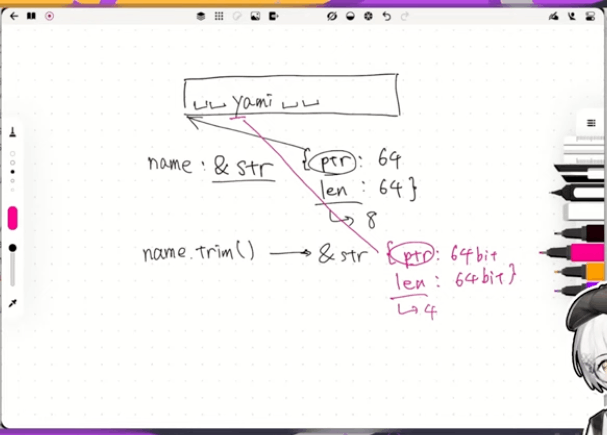 ␣␣ yami ␣␣
name : & str { ptr : 64
len : 64 }
↳ 8
name.trim() → & str { ptr : 64bit
len : 64bit }
↳ 4